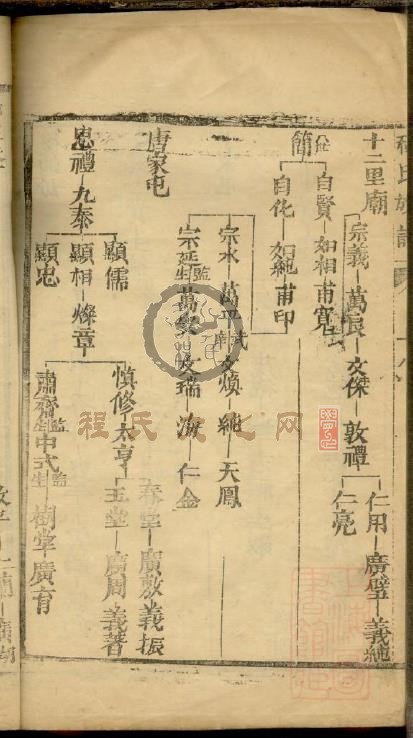 程氏族譜
十二里廟
宗義 萬良 文傑 敦禮 仁用 廣璧 義純
仁亮
簡 自賢 如相 甫寬
自化 如純 甫印
宗水 萬平 文煥 純 天鳳
宗延 監生 文瑞 海 仁金
唐家屯
忠禮 九泰 顯儒
顯相 燦章 慎修 太亨 春堂 廣敷 義振
玉堂 廣周 義著
肅齋 監生 中式 監生 樹堂 廣育
顯忠
程氏文化网